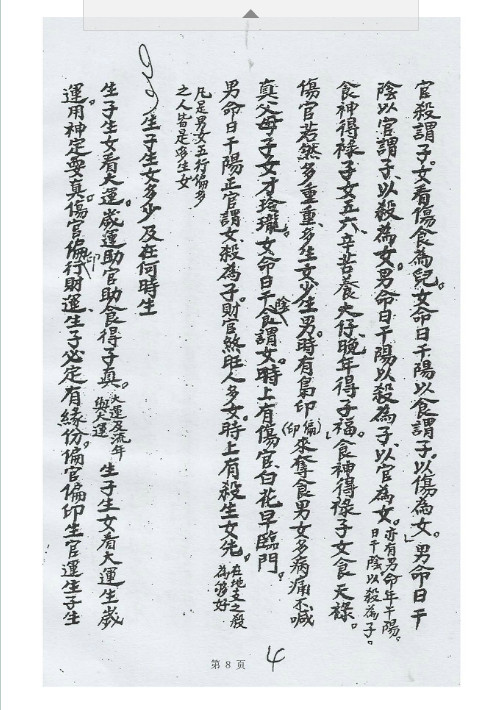 官殺謂子。女看傷食為兒。女命日干陽以食謂子。以傷為女。」男命日干
陰以官謂子、以殺為女。男命日干陽以殺為子、以官為女。亦有男命年干陽。日干陰以殺為子。
食神得祿子女五六、辛苦養大仔、晚年得子福。「食神得祿子女食天祿。
傷官若然多重重、多生女少生男。時有梟印(偏印)來奪食男女多病痛不喊
真父母子女才玲瓏。女命日干陰食謂女。時上有傷官、白花早臨門。
男命日干陽正官謂女、殺為子。財官煞旺人多女。時上有殺生女先。在地支之殺為够好
凡是男女五行偏多
之人皆是多生女
生子生女多少及在何時生
生子生女看大運。歲運助官助食得子真。大運及流年與大運 生子生女看大運生歲
運。用神定要真。傷官偏印行財運、生子必定有緣份。偏官偏印生官運生子生
第 8 页
4